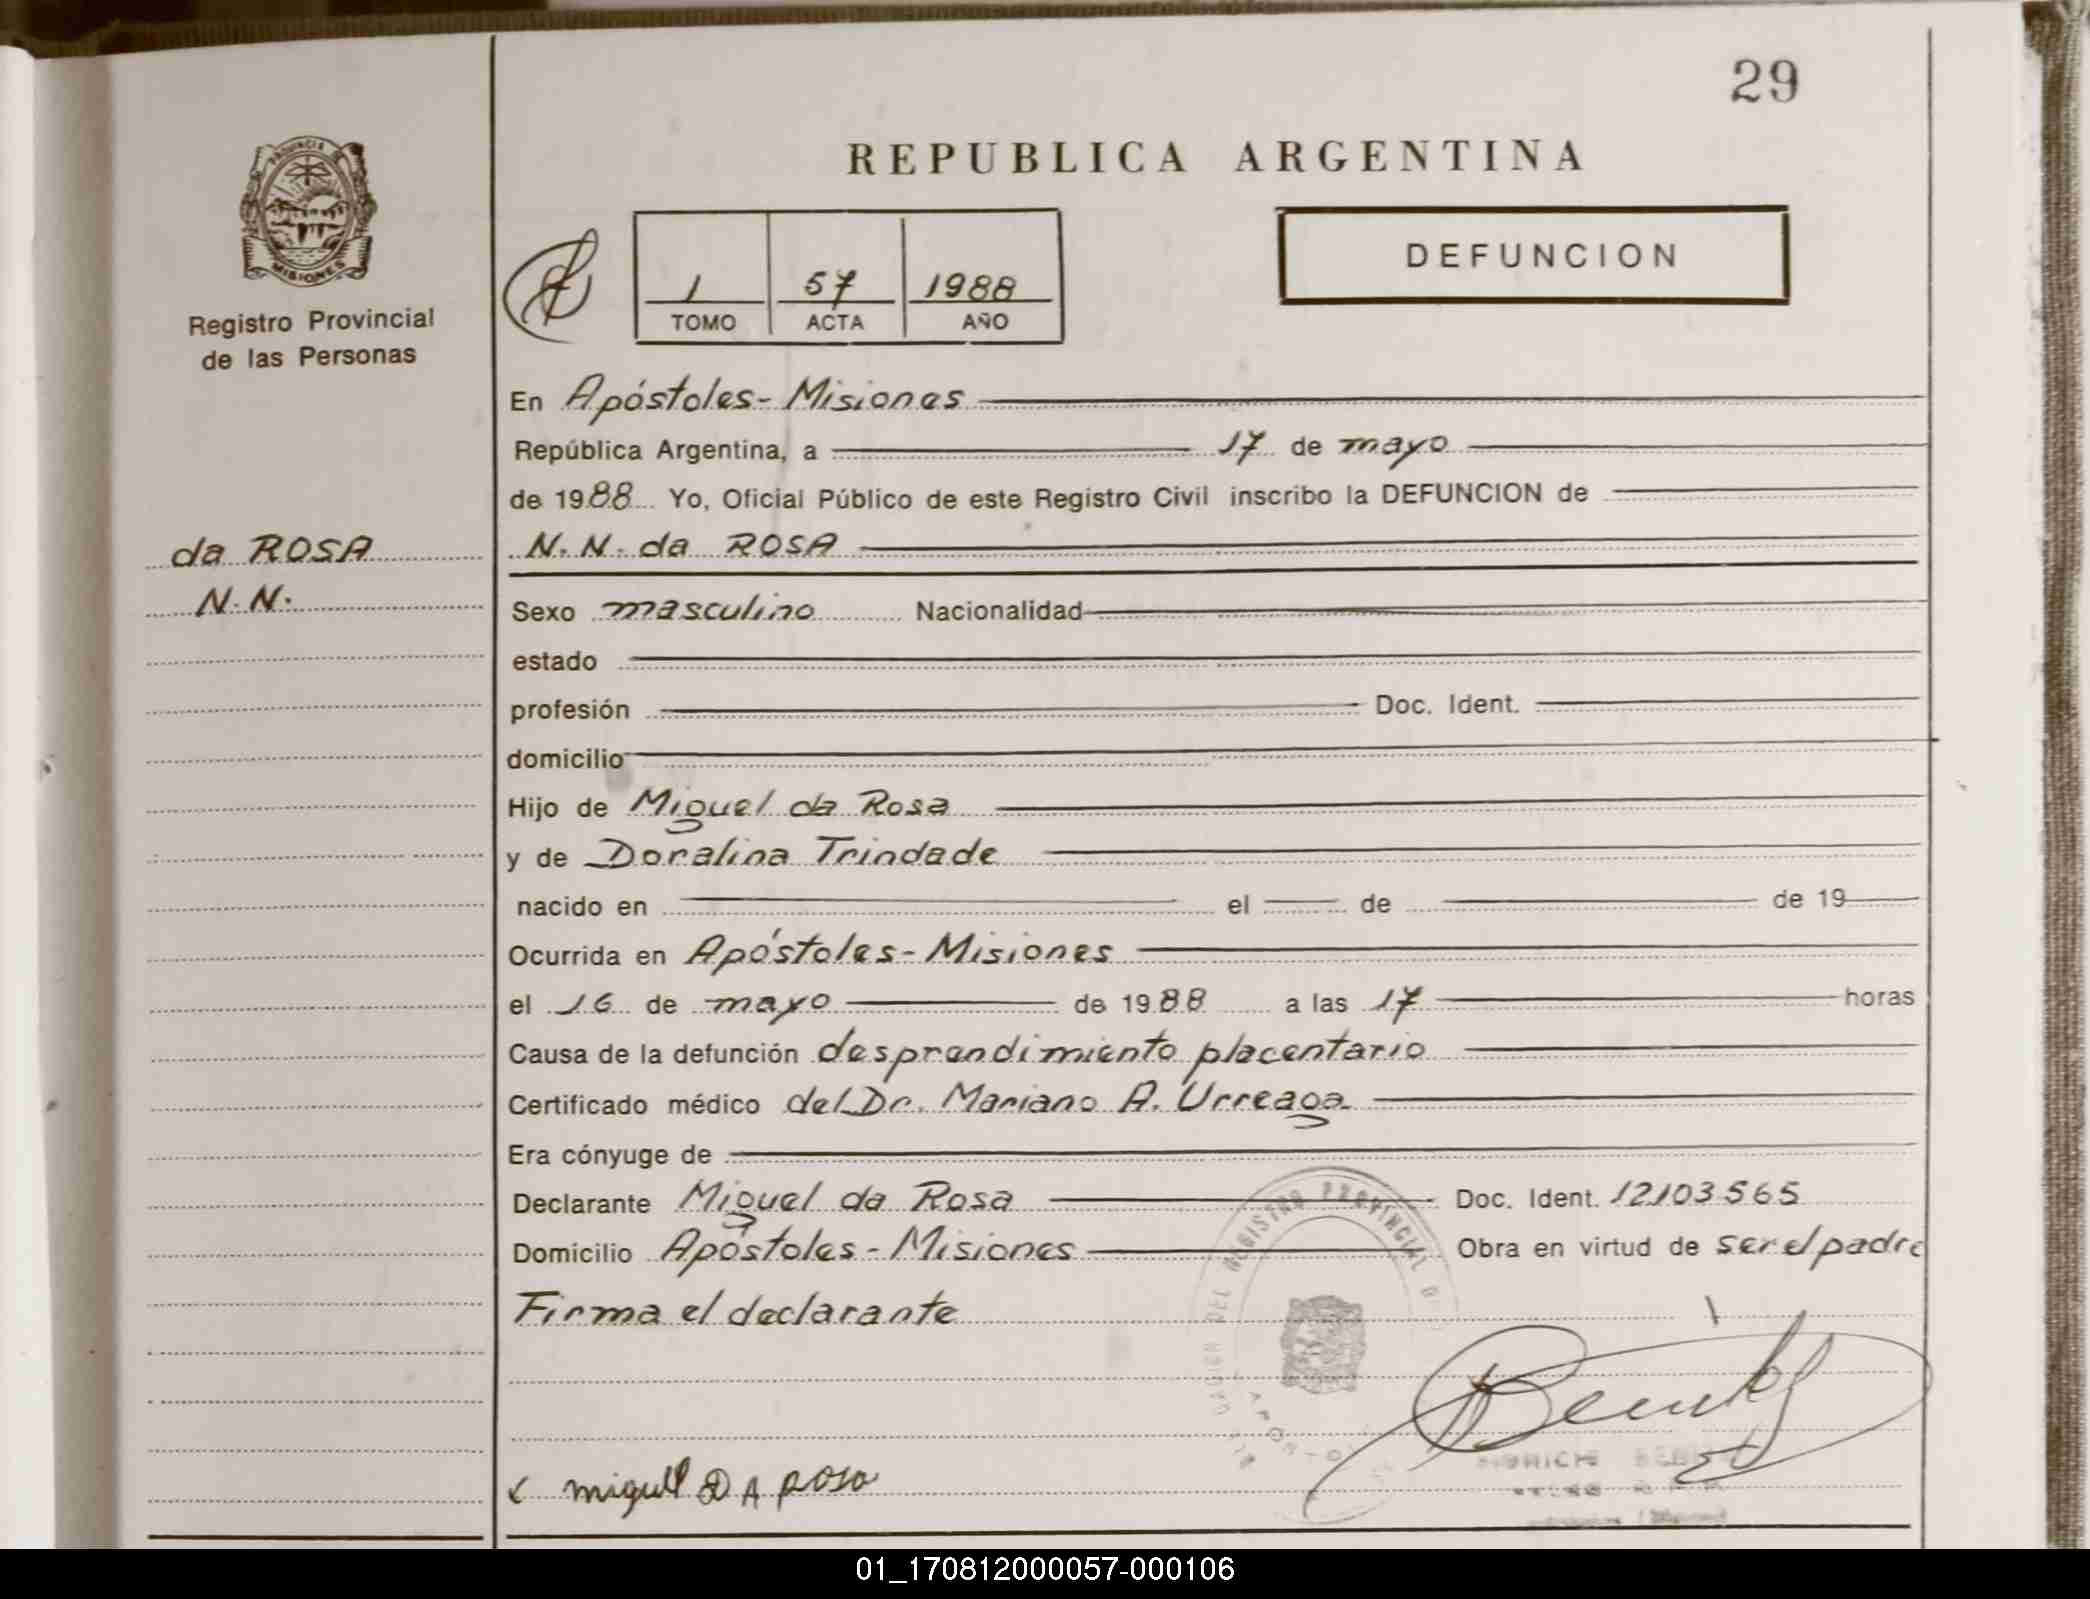 29
REPUBLICA ARGENTINA
PROVINCIA DE
MISIONES
Registro Provincial
de las Personas
1 57 1988
TOMO ACTA AÑO
DEFUNCION
da ROSA
N. N.
En Apóstoles - Misiones
República Argentina, a 17 de mayo
de 1988 Yo, Oficial Público de este Registro Civil inscribo la DEFUNCION de
N. N. da ROSA
Sexo masculino Nacionalidad
estado
profesión Doc. Ident.
domicilio
Hijo de Miguel da Rosa
y de Doralina Trindade
nacido en el de de 19
Ocurrida en Apóstoles - Misiones
el 16 de mayo de 1988 a las 17 horas
Causa de la defunción desprendimiento placentario
Certificado médico del Dr. Mariano A. Urreaga
Era cónyuge de
Declarante Miguel da Rosa Doc. Ident. 12103565
Domicilio Apóstoles - Misiones Obra en virtud de ser el padre
Firma el declarante
DEL REGISTRO PROVINCIAL
miguel DA ROSA
01_170812000057-000106